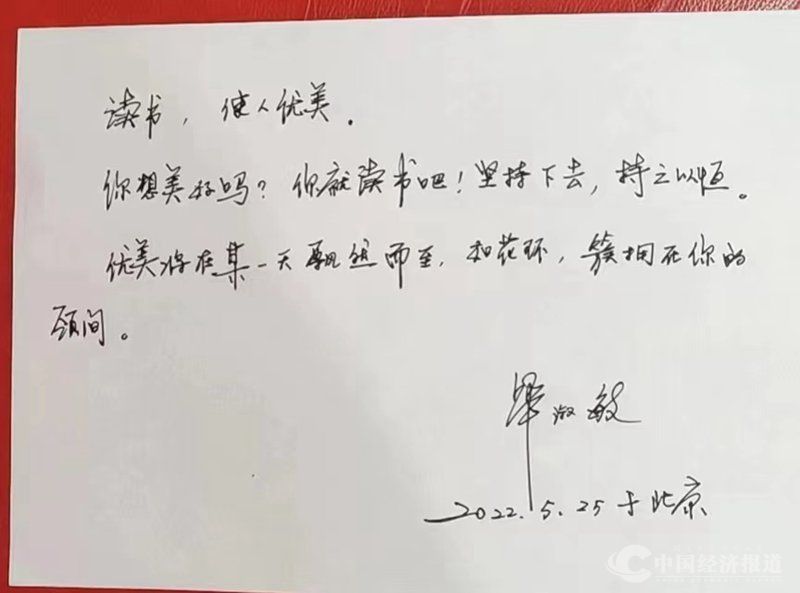 读书，使人优美。
你想美好吗？你就读书吧！坚持下去，持之以恒。
优美将在某一天飘然而至，如花环，簇拥在你的
颈间。
毕淑敏
2022.5.25于北京
中国经济报道